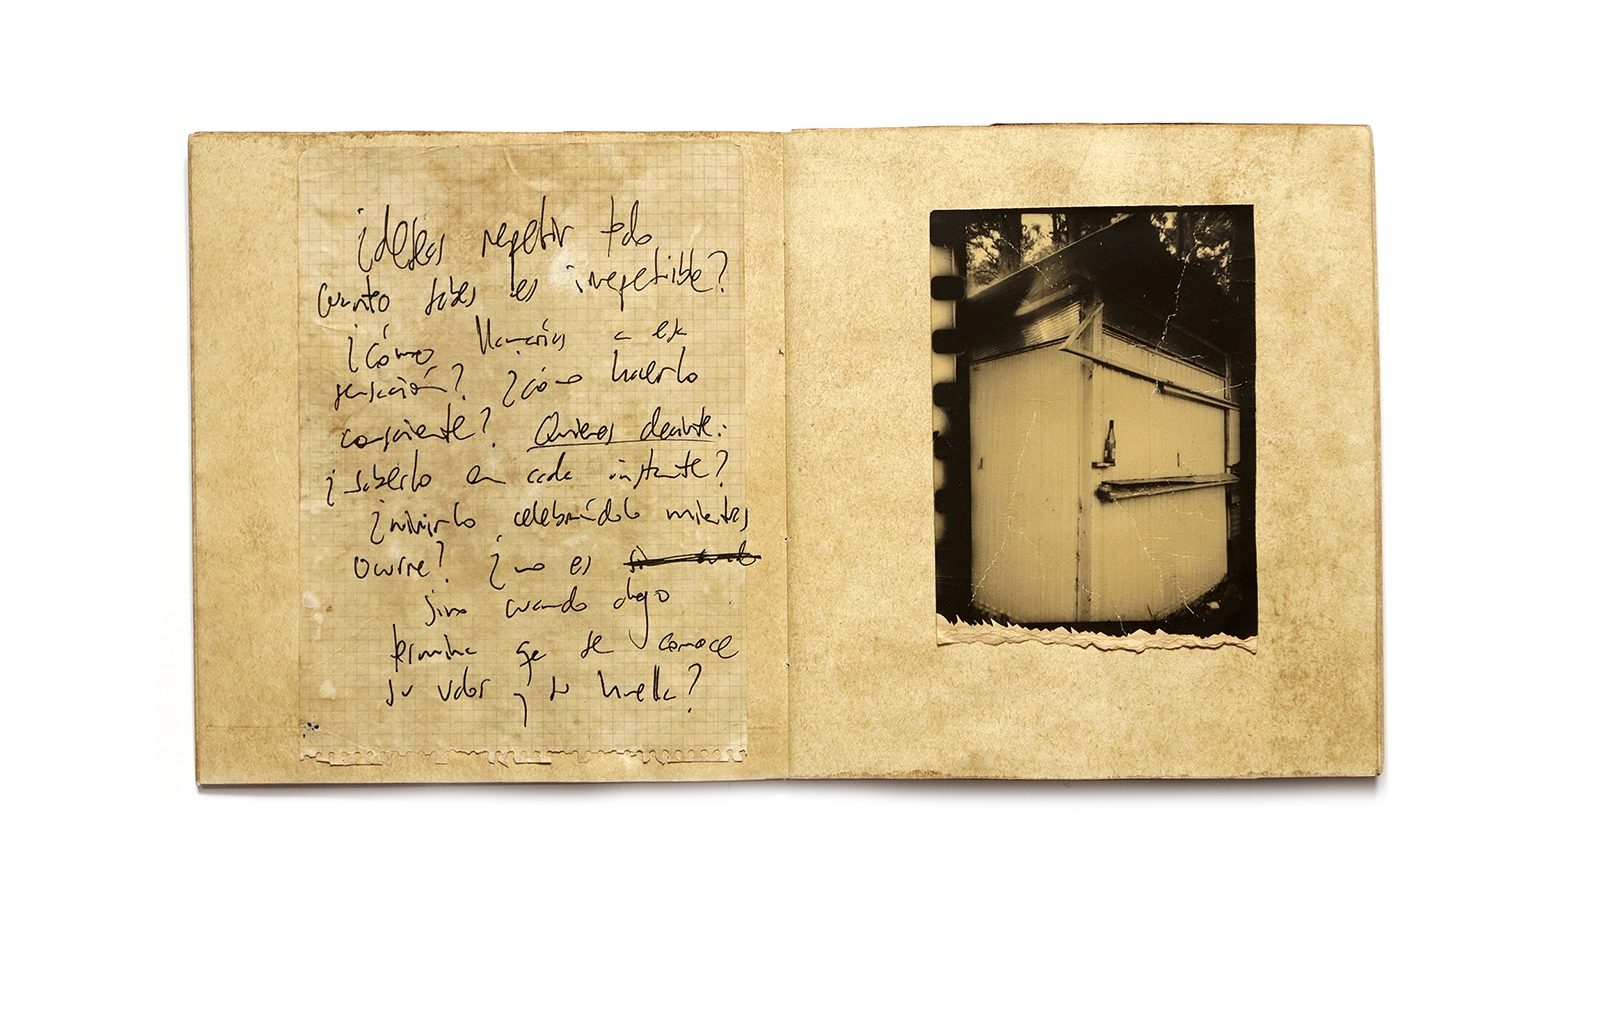 ¿deseas repetir todo
cuanto sabes es irrepetible?
¿Cómo llamarías a esa
sensación? ¿cómo hacerlo
consciente? Quieres decirte:
¿saberlo en cada instante?
¿vivirlo celebrándolo mientras
ocurre? ¿no es
sino cuando algo
termina que se conoce
su valor y su huella?